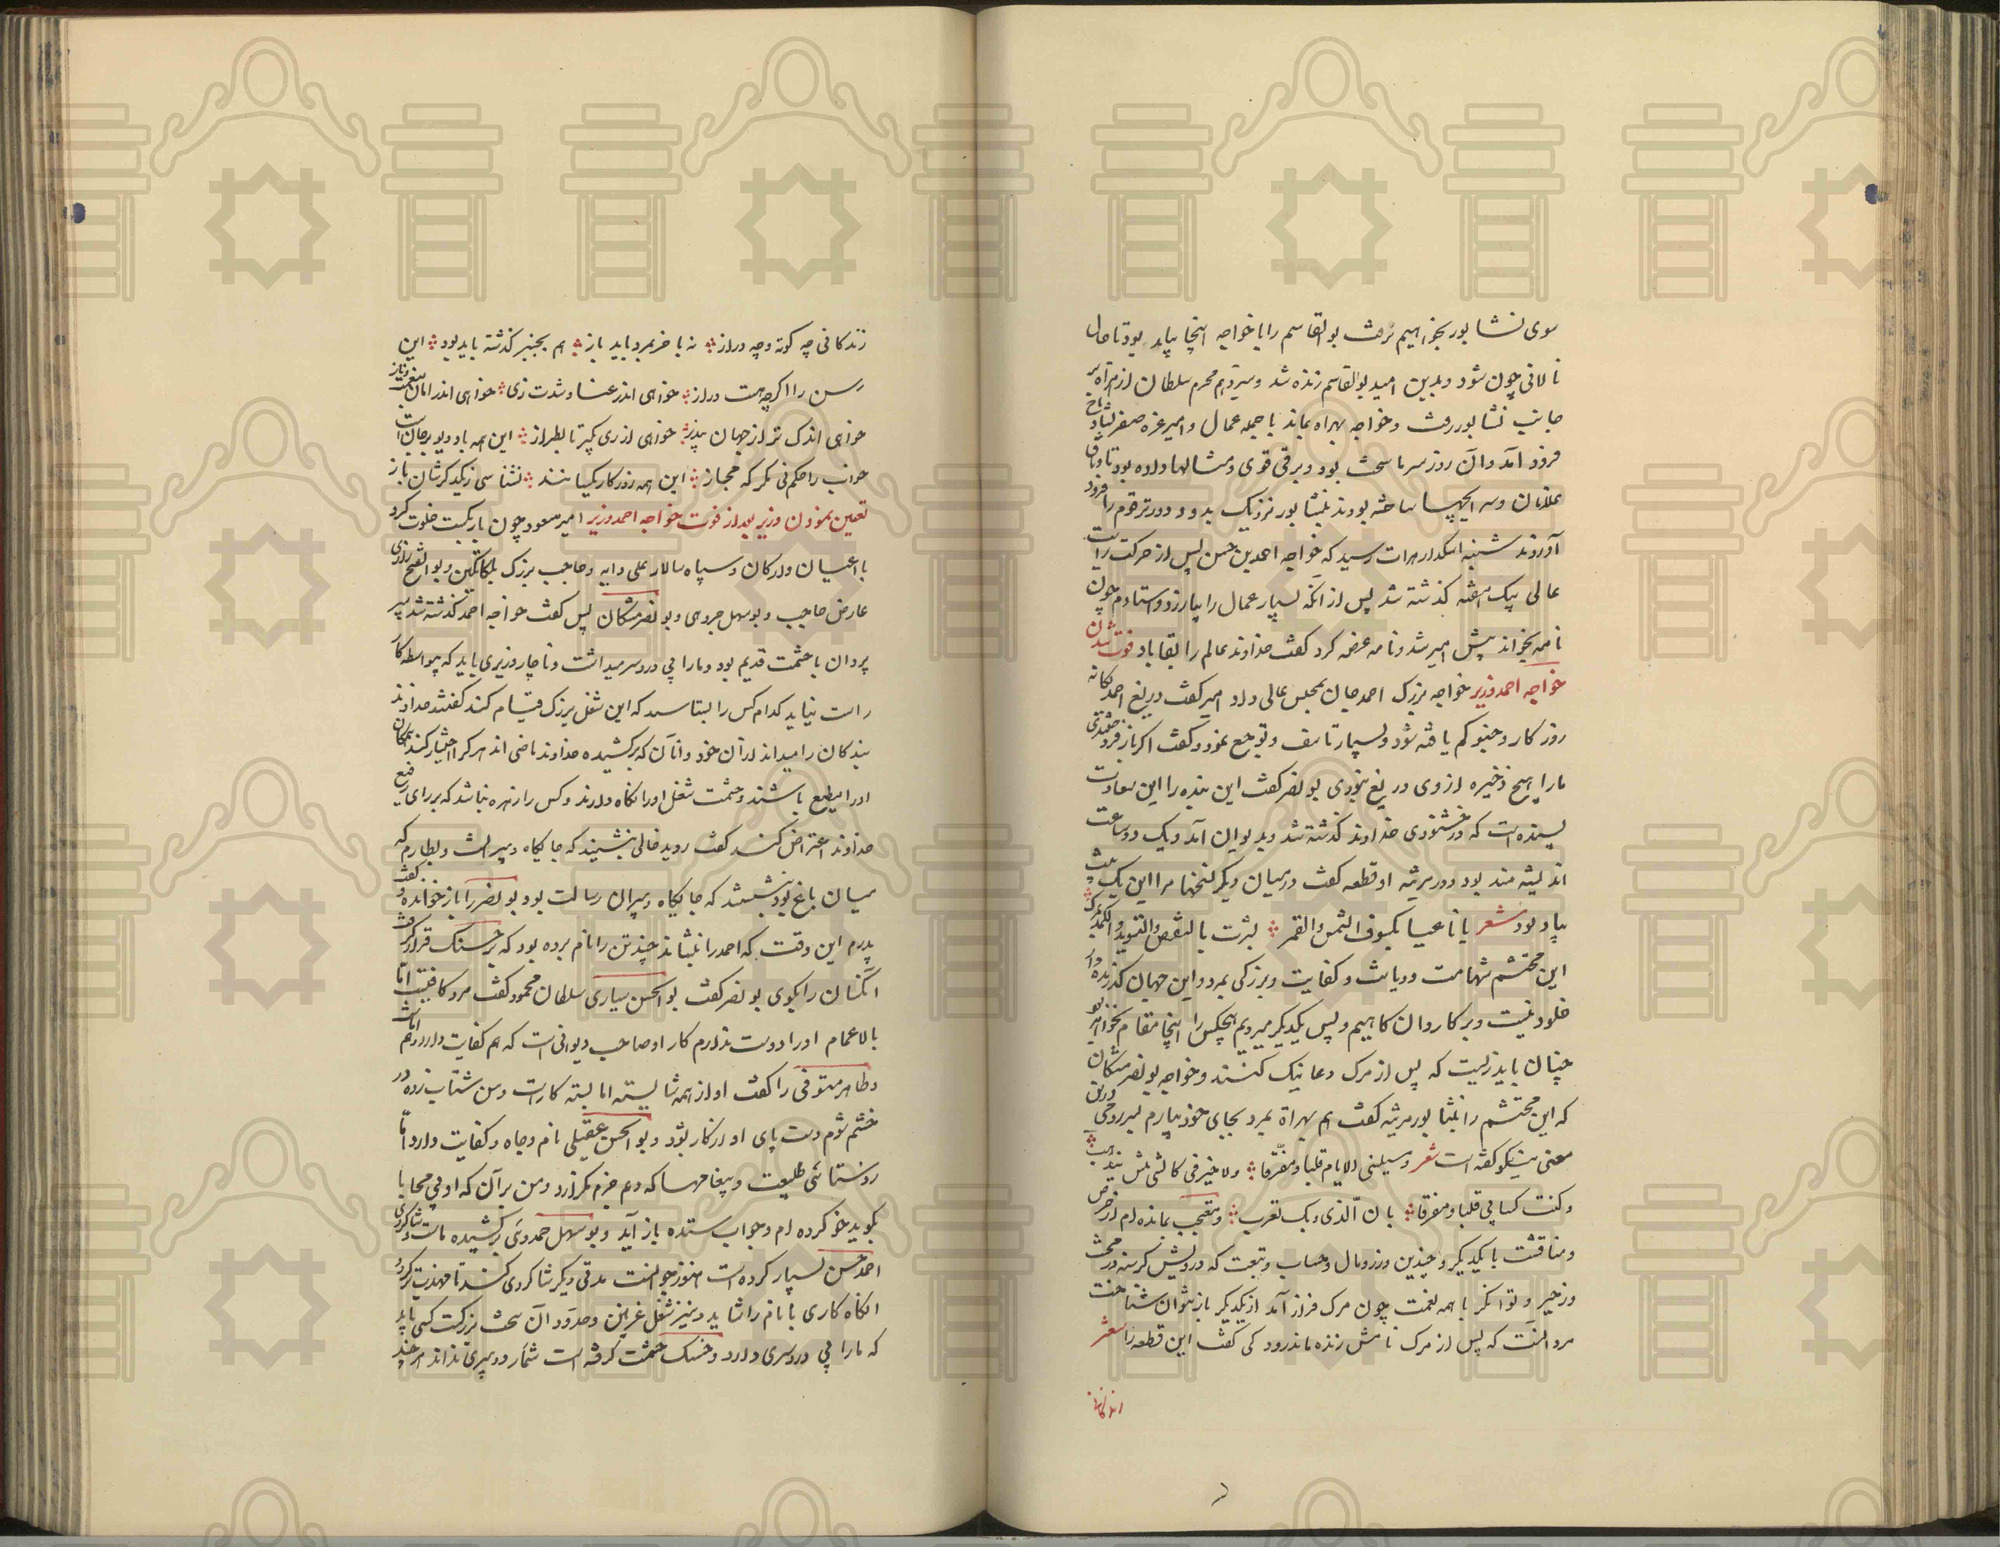 سوی نشابور بخواهیم رفت بوالقاسم را با خواجه اینجا بباید بود تا حال
نالانی چون شود و بدین امید بوالقاسم زنده شد و سیزدهم محرم سلطان از هراه بر
جانب نشابور رفت و خواجه بهراه بماند با جمله عمال و امیر غره صفر بشادیاخ
فرود آمد و آن روز سرما سخت بود و برفی قوی و مثالها داده بود تا وثاق
غلامان و سرایچها ساخته بودند بنشابور نزدیک بدو و دورتر قوم را فرود
آوردند شنبه اسکدار هرات رسید که خواجه احمد بن حسن پس از حرکت رایت
عالی بیک هفته گذشته شد پس از آنکه بسیار عمال را بیازرد و استادم چون
نامه بخواند پیش امیر شد و نامه عرضه کرد گفت خداوند عالم را بقا باد فوت شدن
خواجه احمد وزیر خواجه بزرگ احمد جان بمجلس عالی داد امیر گفت دریغ احمد یگانه
روزگار و چنو کم یافته شود و بسیار تاسف و توجع نمود و گفت اگر باز فروختندی
ما را هیچ ذخیره از وی دریغ نبودی بونصر گفت این بنده را این سعادت
بسنده است که در خشنودی خداوند گذشته شد و بدیوان آمد و یک دو ساعت
اندیشه‌مند بود و در مرثیه او قطعه گفت در میان دیگر سخنها مرا این یک بیت
یاد بود شعر یا ناعیا بکسوف الشمس والقمر بشرت بالنقص والتسوید والکدر
این محتشم شهامت و دیانت و کفایت و بزرگی بمرد و این جهان گذرنده دار
خلود نیست و بر کاروان‌گاهیم و پس یکدیگر میرویم هیچکس را اینجا مقام نخواهد بود
چنان باید زیست که پس از مرگ دعا نیک کنند و خواجه بونصر مشکان
که این محتشم را بنشابور مرثیه گفت هم بهراة بمرد و بجای خود بیارم ابن رومی درین
معنی نیکو گفته است شعر
و کنت
و مناقشت با یکدیگر و چندین وزر و مال و حساب و تبعت که درویش گرسنه در محنت
و زحیر و توانگر با همه نعمت چون مرگ فراز آمد از یکدیگر باز نتوان شناخت
مرد آنست که پس از مرگ نامش زنده ماند رودکی گفت این قطعه را شعر
زندگانی
زندگانی چه کوته و چه دراز نه بآخر بمرد باید باز هم بچنبر گذشته باید بود این
رسن را اگرچه هست دراز خواهی اندر عنا و شدت زی خواهی اندر امان بنعمت و ناز
خواهی اندک‌تر از جهان بپذیر خواهی از ری بگیر تا بطراز این همه باد و بود بر جان است
خواب را حکم نی مگر که مجاز این همه روز کار یکسانند نشناسی زیکدیگرشان باز
تعین نمودن وزیر بعد از فوت خواجه احمد وزیر امیر مسعود چون بار بگسست خلوت کرد
با اعیان و ارکان و سپاه سالار علی دایه و حاجب بزرگ بلکاتگین و بوالفتح رازی
عارض حاجب و بوسهل حمدوی و بونصر مشکان پس گفت خواجه احمد گذشته شد پیر
پردان با حشمت قدیم بود و ما را بی دردسر میداشت و ناچار وزیری باید که بیواسطه کار
راست نیاید کدام کس را بشناسید که این شغل بزرگ قیام کند گفتند خداوند
بندگان را میداند از آن خود و آنان که برکشیده خداوند ماضی اند هر کرا اختیار کند همگان
او را مطیع باشند و حشمت شغل او را نگاه دارند و کس را زهره نباشد که بر رای رفیع
خداوند اعتراض کند گفت روید خالی بنشینید که جایگاه دبیر است و بطارم که
میان باغ بود بنشستند که جایگاه دبیران رسالت بود و بونصر را باز خواند و گفت
پدرم این وقت که احمد را بنشاند چند تن را نام برده بود که بر حسنک قرار گرفت
آنکسان را بگوی بونصر گفت بوالحسن سیاری سلطان محمود گفت مرد کافیست اما
بالا عمام او را دوست ندارم کار او صاحب دیوانی است که هم کفایت دارد و هم امانت
و طاهر مستوفی را گفت او از همه شایسته اما بسته کار است و من شتاب زده در
خشم شوم دست پای او از کار بشود و بوالحسن عقیلی نام و جاه و کفایت دارد اما
روستائی طبیعت و پیغامها که دهم جزم نگزارد و من بر آن که او بی محابا
بگوید خو کرده‌ام و جواب ستده باز آید و بوسهل حمدوی برکشیده ماست و شاگردی
احمد حسن بسیار کرده است هنوز جوانست مدتی دیگر شاگردی کند تا مهذب تر گردد
آنگاه کاری با نام را شاید و نیز شغل غزنین و حدود آن سخت بزرگست کسی باید
که ما را بی دردسری دارد و حسنک حشمت گرفته است شمار و دبیری نداند هر چند